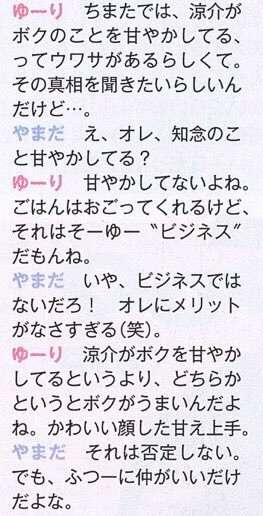 ゆーり　ちまたでは、涼介が
ボクのことを甘やかしてる、
ってウワサがあるらしくて。
その真相を聞きたいらしいん
だけど…。
やまだ　え、オレ、知念のこ
と甘やかしてる？
ゆーり　甘やかしてないよね。
ごはんはおごってくれるけど、
それはそーゆー〝ビジネス〟
だもんね。
やまだ　いや、ビジネスでは
ないだろ！　オレにメリット
がなさすぎる(笑)。
ゆーり　涼介がボクを甘やか
してるというより、どちらか
というとボクがうまいんだよ
ね。かわいい顔した甘え上手。
やまだ　それは否定しない。
でも、ふつーに仲がいいだけ
だよな。